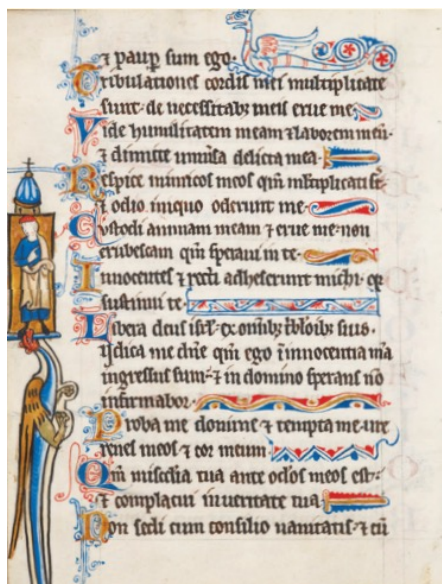 ⁊ paup sum ego·
Tribulationes cordis mei multiplicate
sunt· de necessitabꝫ meis erue me·
Vide humilitatem meam ⁊ laborem meū·
⁊ dimitte uniuīsa delicta mea·
Respice inimicos meos qm̄ mltiplicati st̄·
⁊ odio iniquo oderunt me·
Custodi animam meam ⁊ erue me· non
erubescam qm̄ speraui in te·
Innocentes ⁊ recti adheserunt michi· qr
sustinui te·
Libera deus isrl̄· ex omībꝫ tb̄lōibꝫ suis·
Iudica me dn̄e qm̄ ego ī innocentia mā
ingressus sum· ⁊ in domino sperans nō
infirmabor·
Proba me domine ⁊ tempta me· ure
renes meos ⁊ cor meum·
Qm̄ mis̄cdia tua ante oc̄los meos est·
⁊ complacui in ueritate tua·
Non sedi cum consilio uanitatis· ⁊ cū